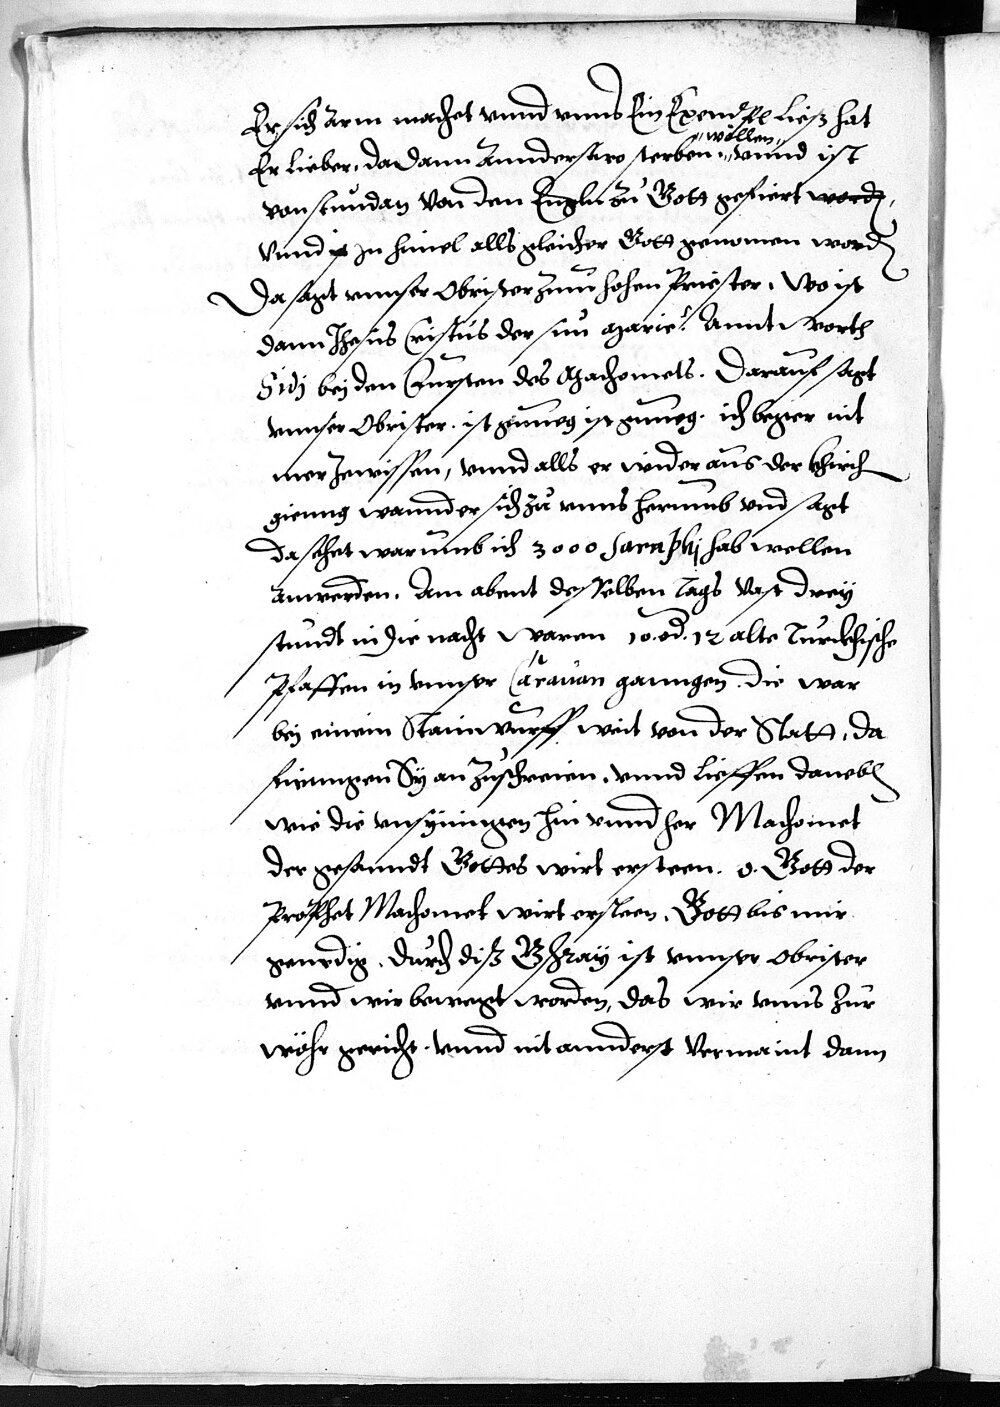 Er sich Arm machet vnnd vnns Ein Exempl ließ hat
wöllen
Er lieber, da dann Annderstwo sterben vnnd ist
von stundan Von den Engln zu Gott gefiert word,
Vnnd jn himel alls gleicher Gott genomen word
Da sagt vnnser Obrister zum hohen Priester, Wo ist
dann Jhesus Cristus der sun Marie? Annt Wortt
Sidj bej den Fuesten des Machomets. Darauf sagt
vnnser Obrister. ist gnueg ist gnueg. ich beger nit
mer zewissen, vnnd alls er wider aus der Khirch
gienng wannd er sich zu vnns herumb vnd sagt
da sehet warumb ich 3000 Saraphj hab wellen
anwerden. Am abent desselben tags Vast drey
stundt in die nacht Waren 10. od. 12 alte Turckhische
Pfaffen in vnnser Carauan ganngen. die war
bej einem Stainwurff weit von der Statt, da
fienngen Sy an Zuschreien, vnnd lieffen daneb
wie die vnsÿnnigen hin vnnd her Machomet
der gesanndt Gottes wirt ersteen. o. Gott der
Prophet Machomet wirt ersteen, Gott bis mir
genedig. Durch diß Gschray ist vnnser Obrister
vnnd wir bewegt worden, das wir vnns Zur
wöhr gericht. vnnd nit annderst Vermaint dann